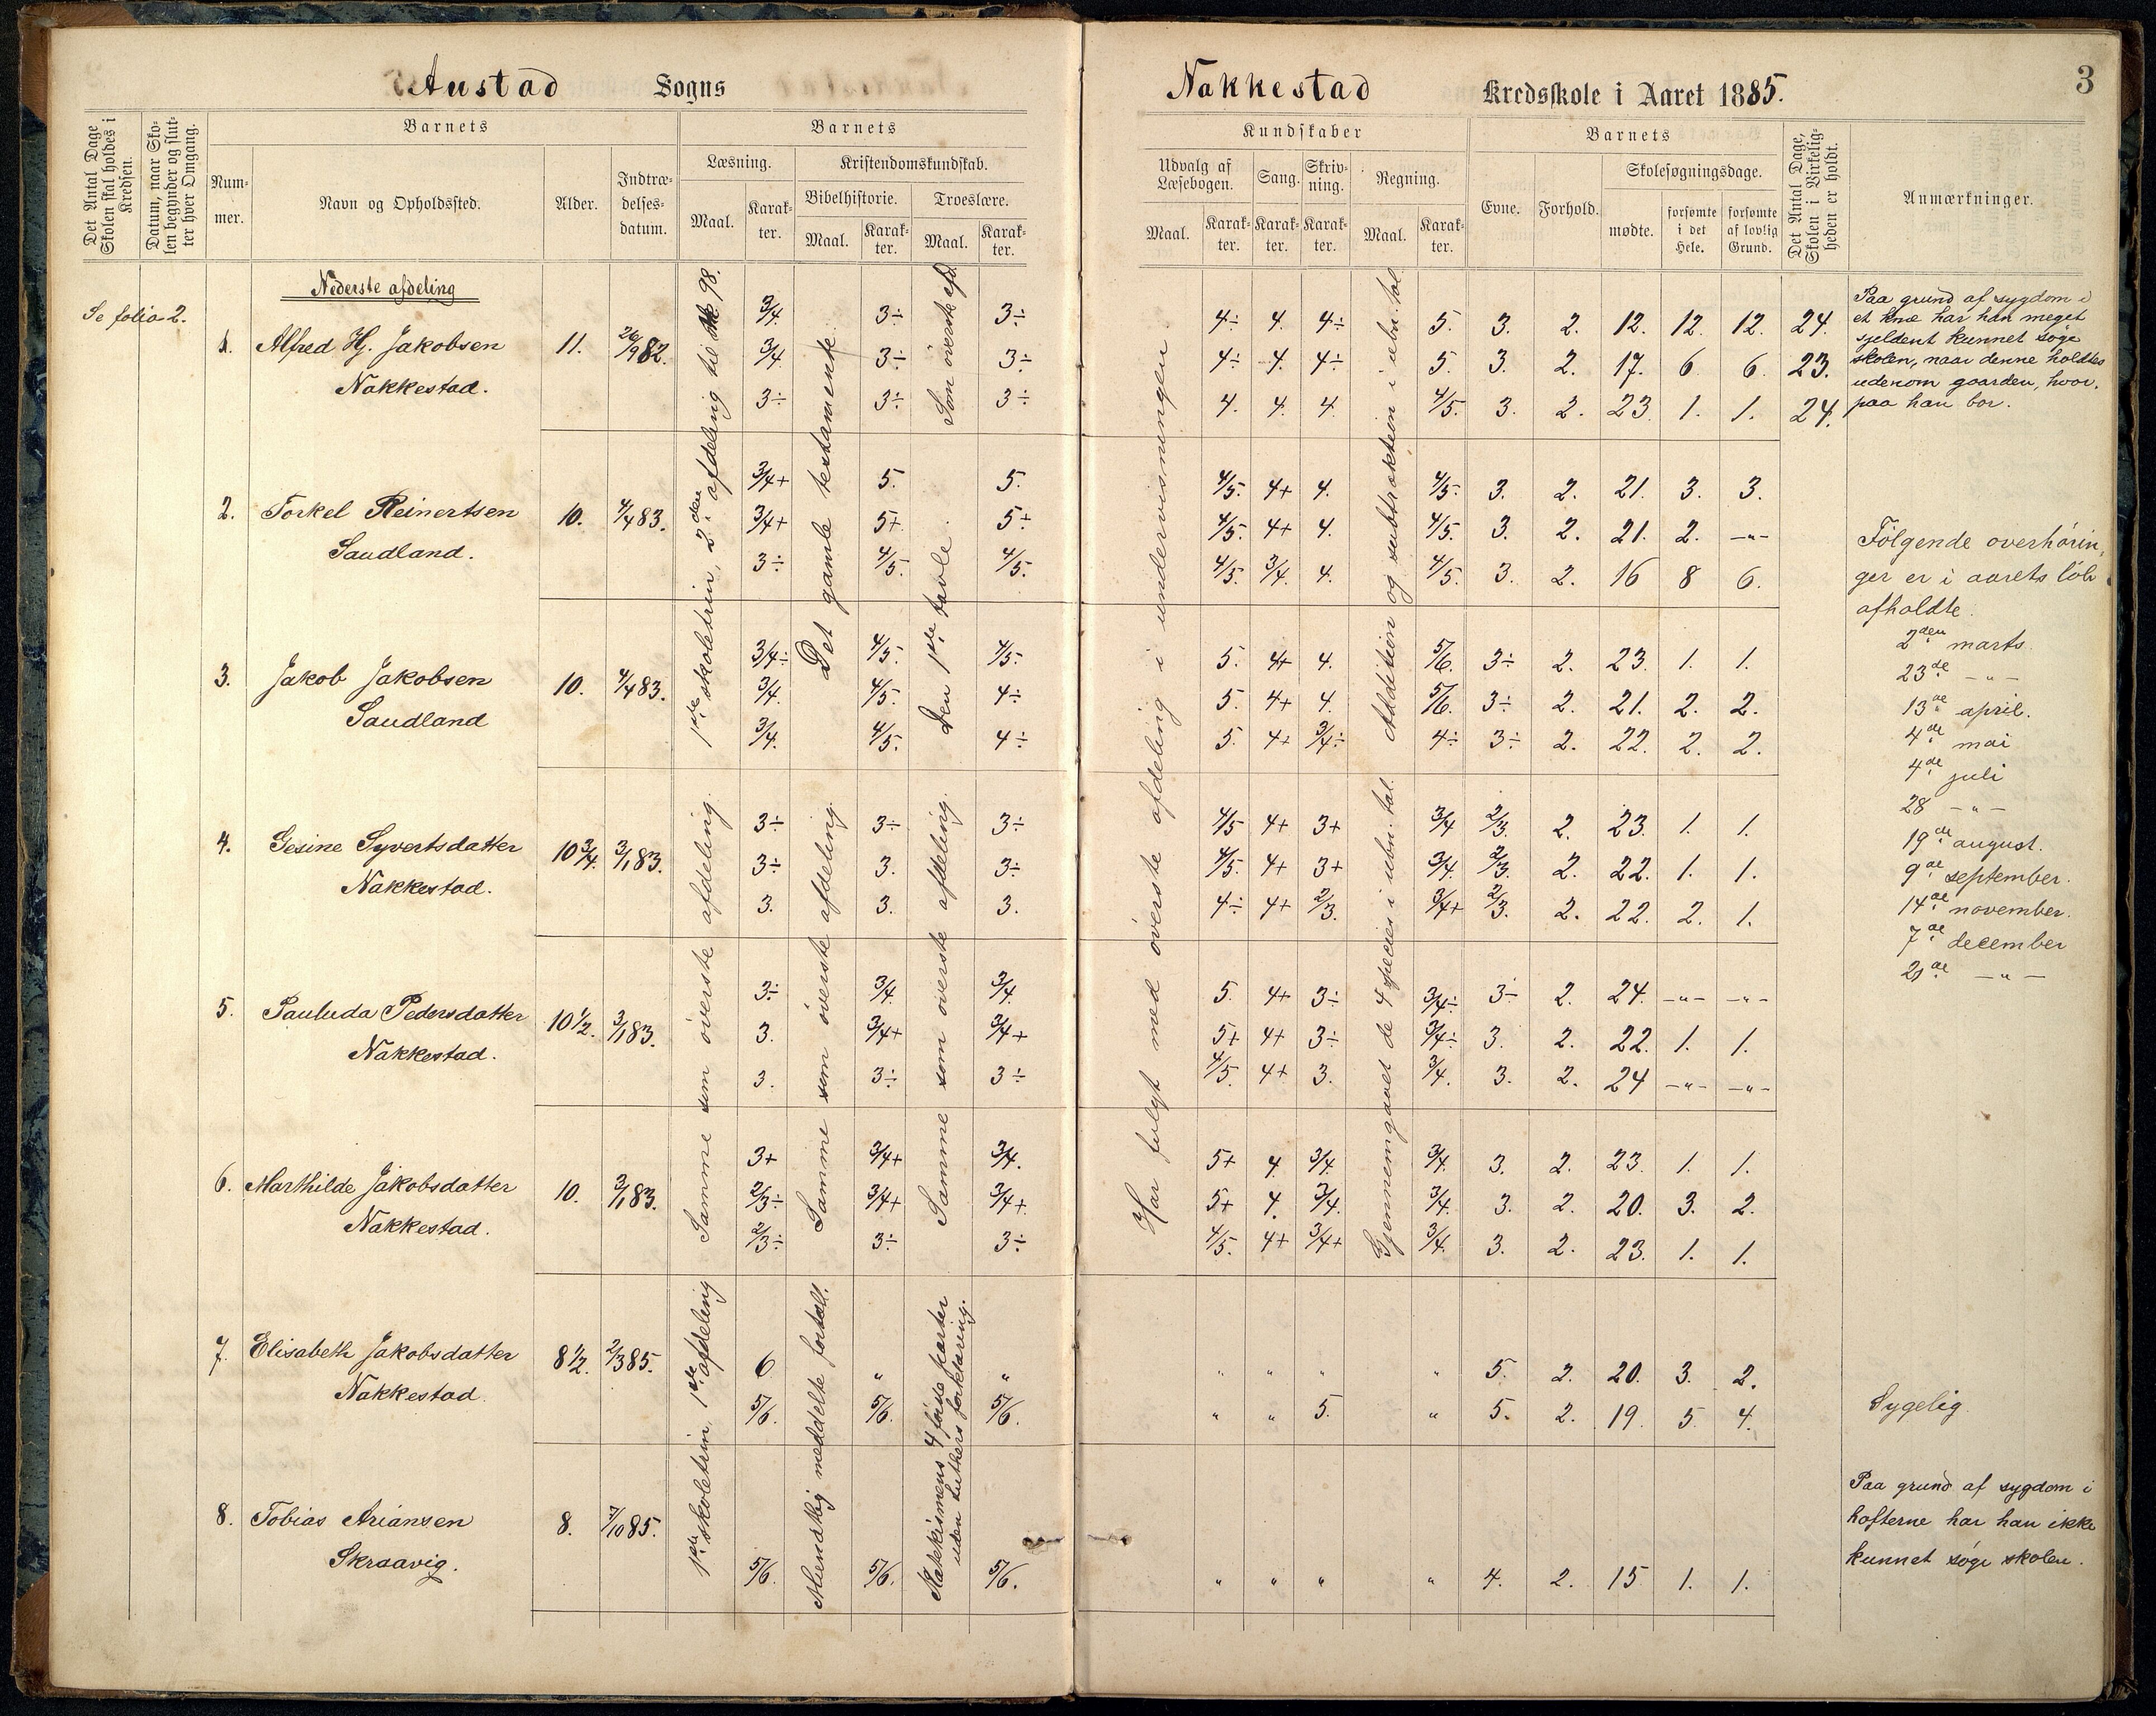 Austad Sogns
Nakkestad Kredsskole i Aaret 1885.
3
Det Antal Dage Skolen skal holdes i Kredsen.
Datum, naar Skolen begynder og slutter hver Omgang.
Barnets
Nummer.
Navn og Opholdssted.
Alder.
Indtrædelsesdatum.
Barnets
Læsning.
Maal.
Karakter.
Kristendomskundskab.
Bibelhistorie.
Maal.
Karakter.
Troeslære.
Maal.
Karakter.
Kundskaber
Udvalg af Læsebogen.
Maal.
Karakter.
Sang.
Karakter.
Skrivning.
Karakter.
Regning.
Maal.
Karakter.
Barnets
Evne.
Forhold.
Skolesøgningsdage.
mødte.
forsømte i det Hele.
forsømte af lovlig Grund.
Det Antal Dage, Skolen i Virkeligheden er holdt.
Anmærkninger.
Se folio 2.
Nederste afdeling
1. Alfred Hj. Jakobsen 11. 26/9 82.
Nakkestad.
3/4. 3÷ 3÷ 4÷ 4. 4÷ 5. 3. 2. 12. 12. 12. 24.
3/4 3÷ 3÷ 4÷ 4. 4÷ 5. 3. 2. 17. 6 6. 23.
3÷ 3÷ 3÷ 4. 4. 4. 4/5. 3. 2. 23 1. 1. 24.
2. Torkel Reinertsen 10. 4/4 83.
Saudland.
3/4+ 5. 5. 4/5. 4+ 4. 4/5. 3. 2. 21. 3. 3.
3/4+ 5+ 5+ 4/5. 4+ 4. 4/5. 3. 2. 21. 2. -"-
3÷ 4/5. 4/5. 4/5. 3/4. 4. 4/5. 3. 2. 16 8 6.
3. Jakob Jakobsen 10. 4/4 83.
Saudland
3/4÷ 4/5. 4/5. 5. 4+ 4. 5/6. 3÷ 2. 23. 1. 1.
3/4. 4/5. 4÷ 5. 4+ 4. 5/6. 3÷ 2. 21. 2. 2.
3/4. 4/5. 4÷ 5. 4+ 3/4÷ 4÷ 3÷ 2. 22. 2. 2.
4. Gesine Syvertsdatter 10 3/4. 3/1 83.
Nakkestad.
3÷ 3÷ 3÷ 4/5 4+ 3+ 3/4 2/3. 2. 23. 1. 1.
3÷ 3. 3÷ 4/5. 4+ 3+ 3/4. 2/3. 2. 22. 1. 1.
3. 3. 3. 4÷ 4+ 2/3. 3/4+ 2/3. 2. 22. 2. 1.
5. Pauluda Pedersdatter 10 1/2. 3/1 83.
Nakkestad.
3÷ 3/4. 3/4. 5. 4+ 3÷ 3/4÷ 3÷ 2. 24. -"- -"-
3. 3/4+ 3/4+ 5+ 4+ 3÷ 3/4÷ 3. 2. 22. 1. 1.
3. 3÷ 3÷ 4/5. 4+ 3. 3/4. 3. 2. 24 -"- -"-
6. Marthilde Jakobsdatter 10. 3/1 83.
Nakkestad.
3+ 3/4+ 3/4. 5+ 4 3/4. 3/4. 3. 2. 23. 1. 1.
2/3÷ 3/4+ 3/4+ 5+ 4. 3/4. 3/4. 3. 2. 20. 3. 2.
2/3÷ 3÷ 3÷ 4/5. 4+ 3/4+ 3/4. 3. 2. 23. 1. 1.
7. Elisabeth Jakobsdatter 8 1/2. 2/3 85.
Nakkestad.
6 " " " " " " 5. 2. 20. 3. 2.
5/6. 5/6. 5/6. " " 5. " 5. 2. 19. 5. 4.
8. Tobias Ariansen 8. 7/10 85.
Skraavig.
5/6. 5/6. 5/6. " " " " 4. 2. 15 1. 1.
1ste skoletrin, 2den afdeling til 98.
Det gamle testamente
Den 1ste tavle. Som øverste afd.
Samme som øverste afdeling.
Samme som øverste afdeling.
Samme som øverste afdeling.
1ste skoletrin, 1ste afdeling
Mundtlig meddelte fortæll.
Katekismens 4 første parter
uden Luthers forklaring.
Har fulgt med øverste afdeling i undervisningen
Addition og subtraktion i ubn. tal
Gjennemgaaet de 4 species i ubn. tal.
Paa grund af sygdom i
et knæ har han meget
sjeldent kunnet søge
skolen, naar denne holdtes
udenom gaarden, hvor-
paa han bor.
Følgende overhørin-
ger er i aarets løb
afholdte.
2den marts.
23de -"-
13de april.
4de mai
4de juli
28 -"-
19de august.
9de september.
14de november.
7de december
21de -"-
Sygelig.
Paa grund af sygdom i
hofterne har han ikke
kunnet søge skolen.